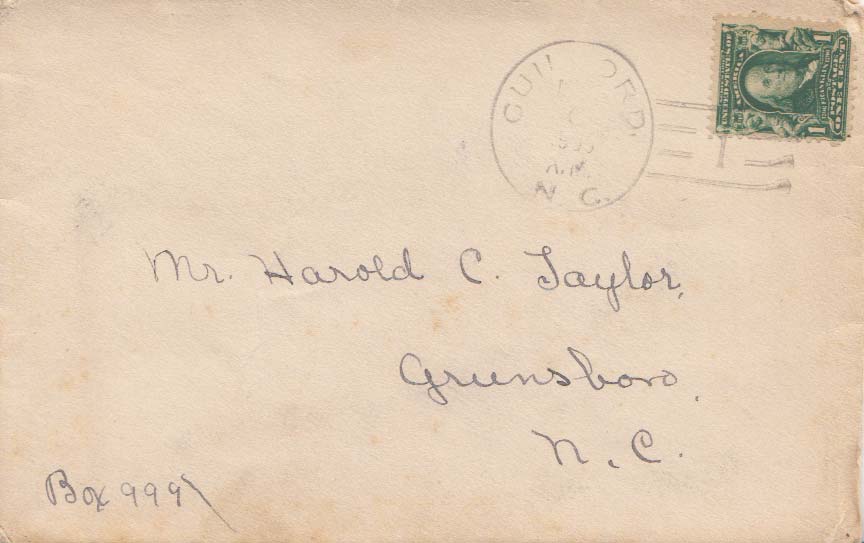 GUILFORD.
A.M.
N C.
Mr. Harold C. Taylor,
Greensboro,
N. C.
Box 999